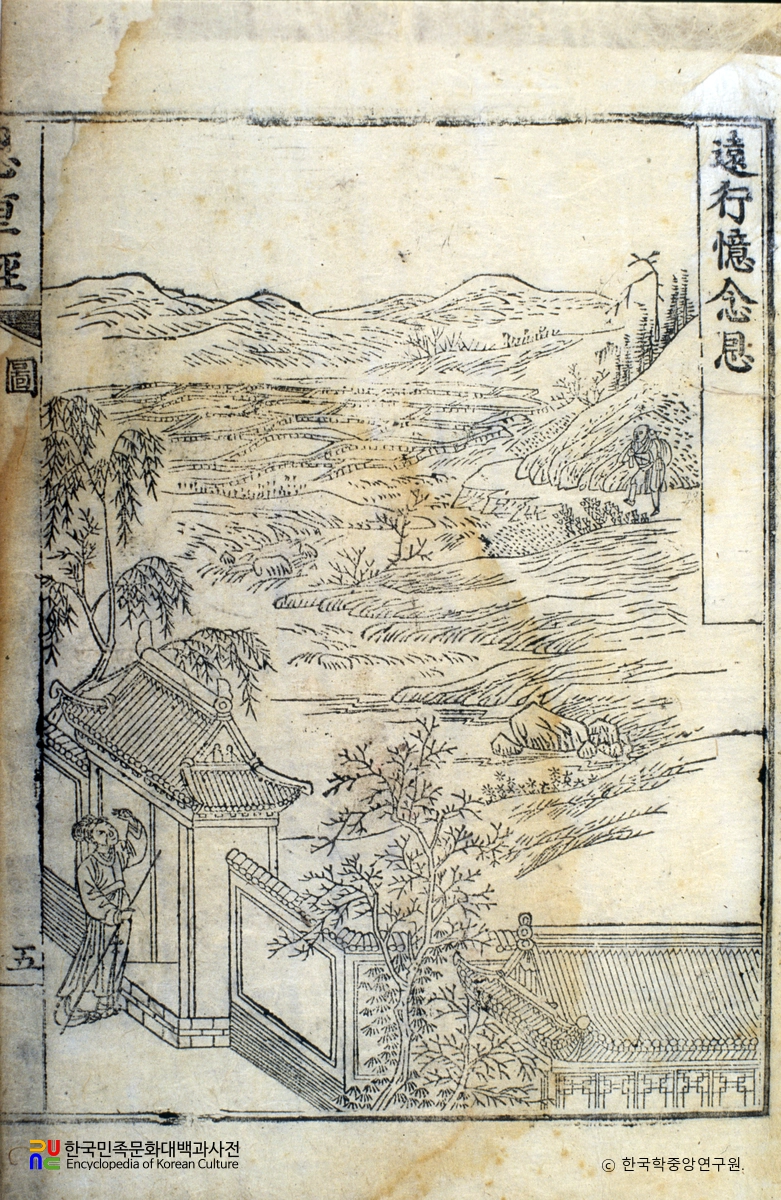 遠行憶念恩
恩重經
圖
五
한국민족문화대백과사전
Encyclopedia of Korean Culture
ⓒ 한국학중앙연구원.